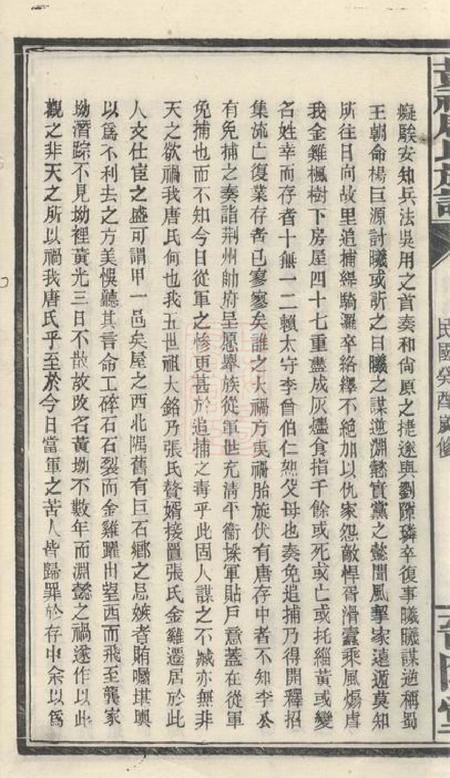 黃洞唐氏族譜
民國癸酉歲修
癡騃安知兵法吳用之首奏和尙原之捷遂與劉陳璘卒復事曦曦謀逆稱蜀
王朝命楊巨源討曦或訴之曰曦之謀逆淵懿實黨之懿聞風挈家遠遁莫知
所往日向故里追捕緹騎邏卒絡繹不絕加以仇家怨敵悍胥滑蠹乘風煽虐
我金雞楓樹下房屋四十七重盡成灰燼食指千餘或死或亡或托緇黃或變
名姓幸而存者十無一二賴太守李曾伯仁煦父母也奏免追捕乃得開釋招
集流亡復業存者已寥寥矣誰之大禍方夷禍胎旋伏有唐存中者不知李公
有免捕之奏詣荆州帥府呈愿舉族從軍世充清平衞操軍貼戶意蓋在從軍
免捕也而不知今日從軍之慘更甚於追捕之毒乎此固人謀之不臧亦無非
天之欲禍我唐氏何也我五世祖大銘乃張氏贅婿接置張氏金雞遷居於此
人文仕宦之盛可謂甲一邑矣屋之西北隅舊有巨石鄉之忌嫉者賄囑堪輿
以爲不利去之方美悞聽其言命工碎石石裂而金雞躍出望西而飛至龔家
坳潛踪不見坳裡黃光三日不散故改名黃坳不數年而淵懿之禍遂作以此
觀之非天之所以禍我唐氏乎至於今日當軍之苦人皆歸罪於存中余以爲